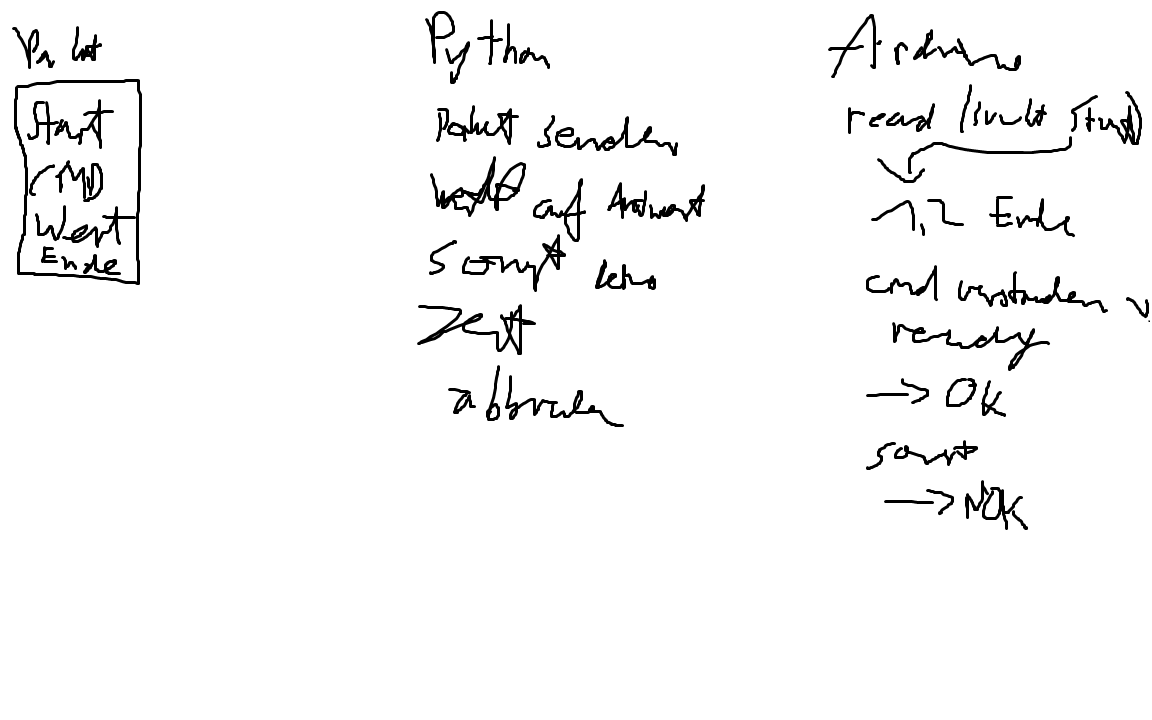 Paket
Start
CMD
Wert
Ende
Python
Paket senden
auf Antwort
sonst
Zeit
abbruch
Arduino
read (sucht Start)
1,2 Ende
cmd verstanden
ready
→ OK
sonst
→ NOK